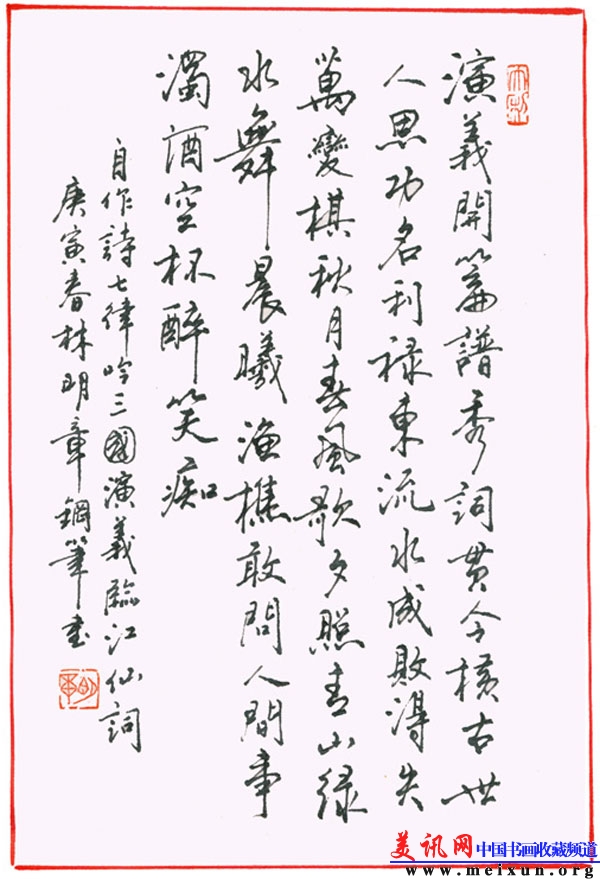 演義開篇譜秀詞貫今橫古世
人思功名利祿東流水成敗得失
萬變棋秋月春風歌夕照青山綠
水舞晨曦漁樵敢問人間事
濁酒空杯醉笑痴
自作詩七律吟三國演義臨江仙詞
庚寅春林明章鋼筆書
美讯网 中国书画收藏频道
www.meixun.org